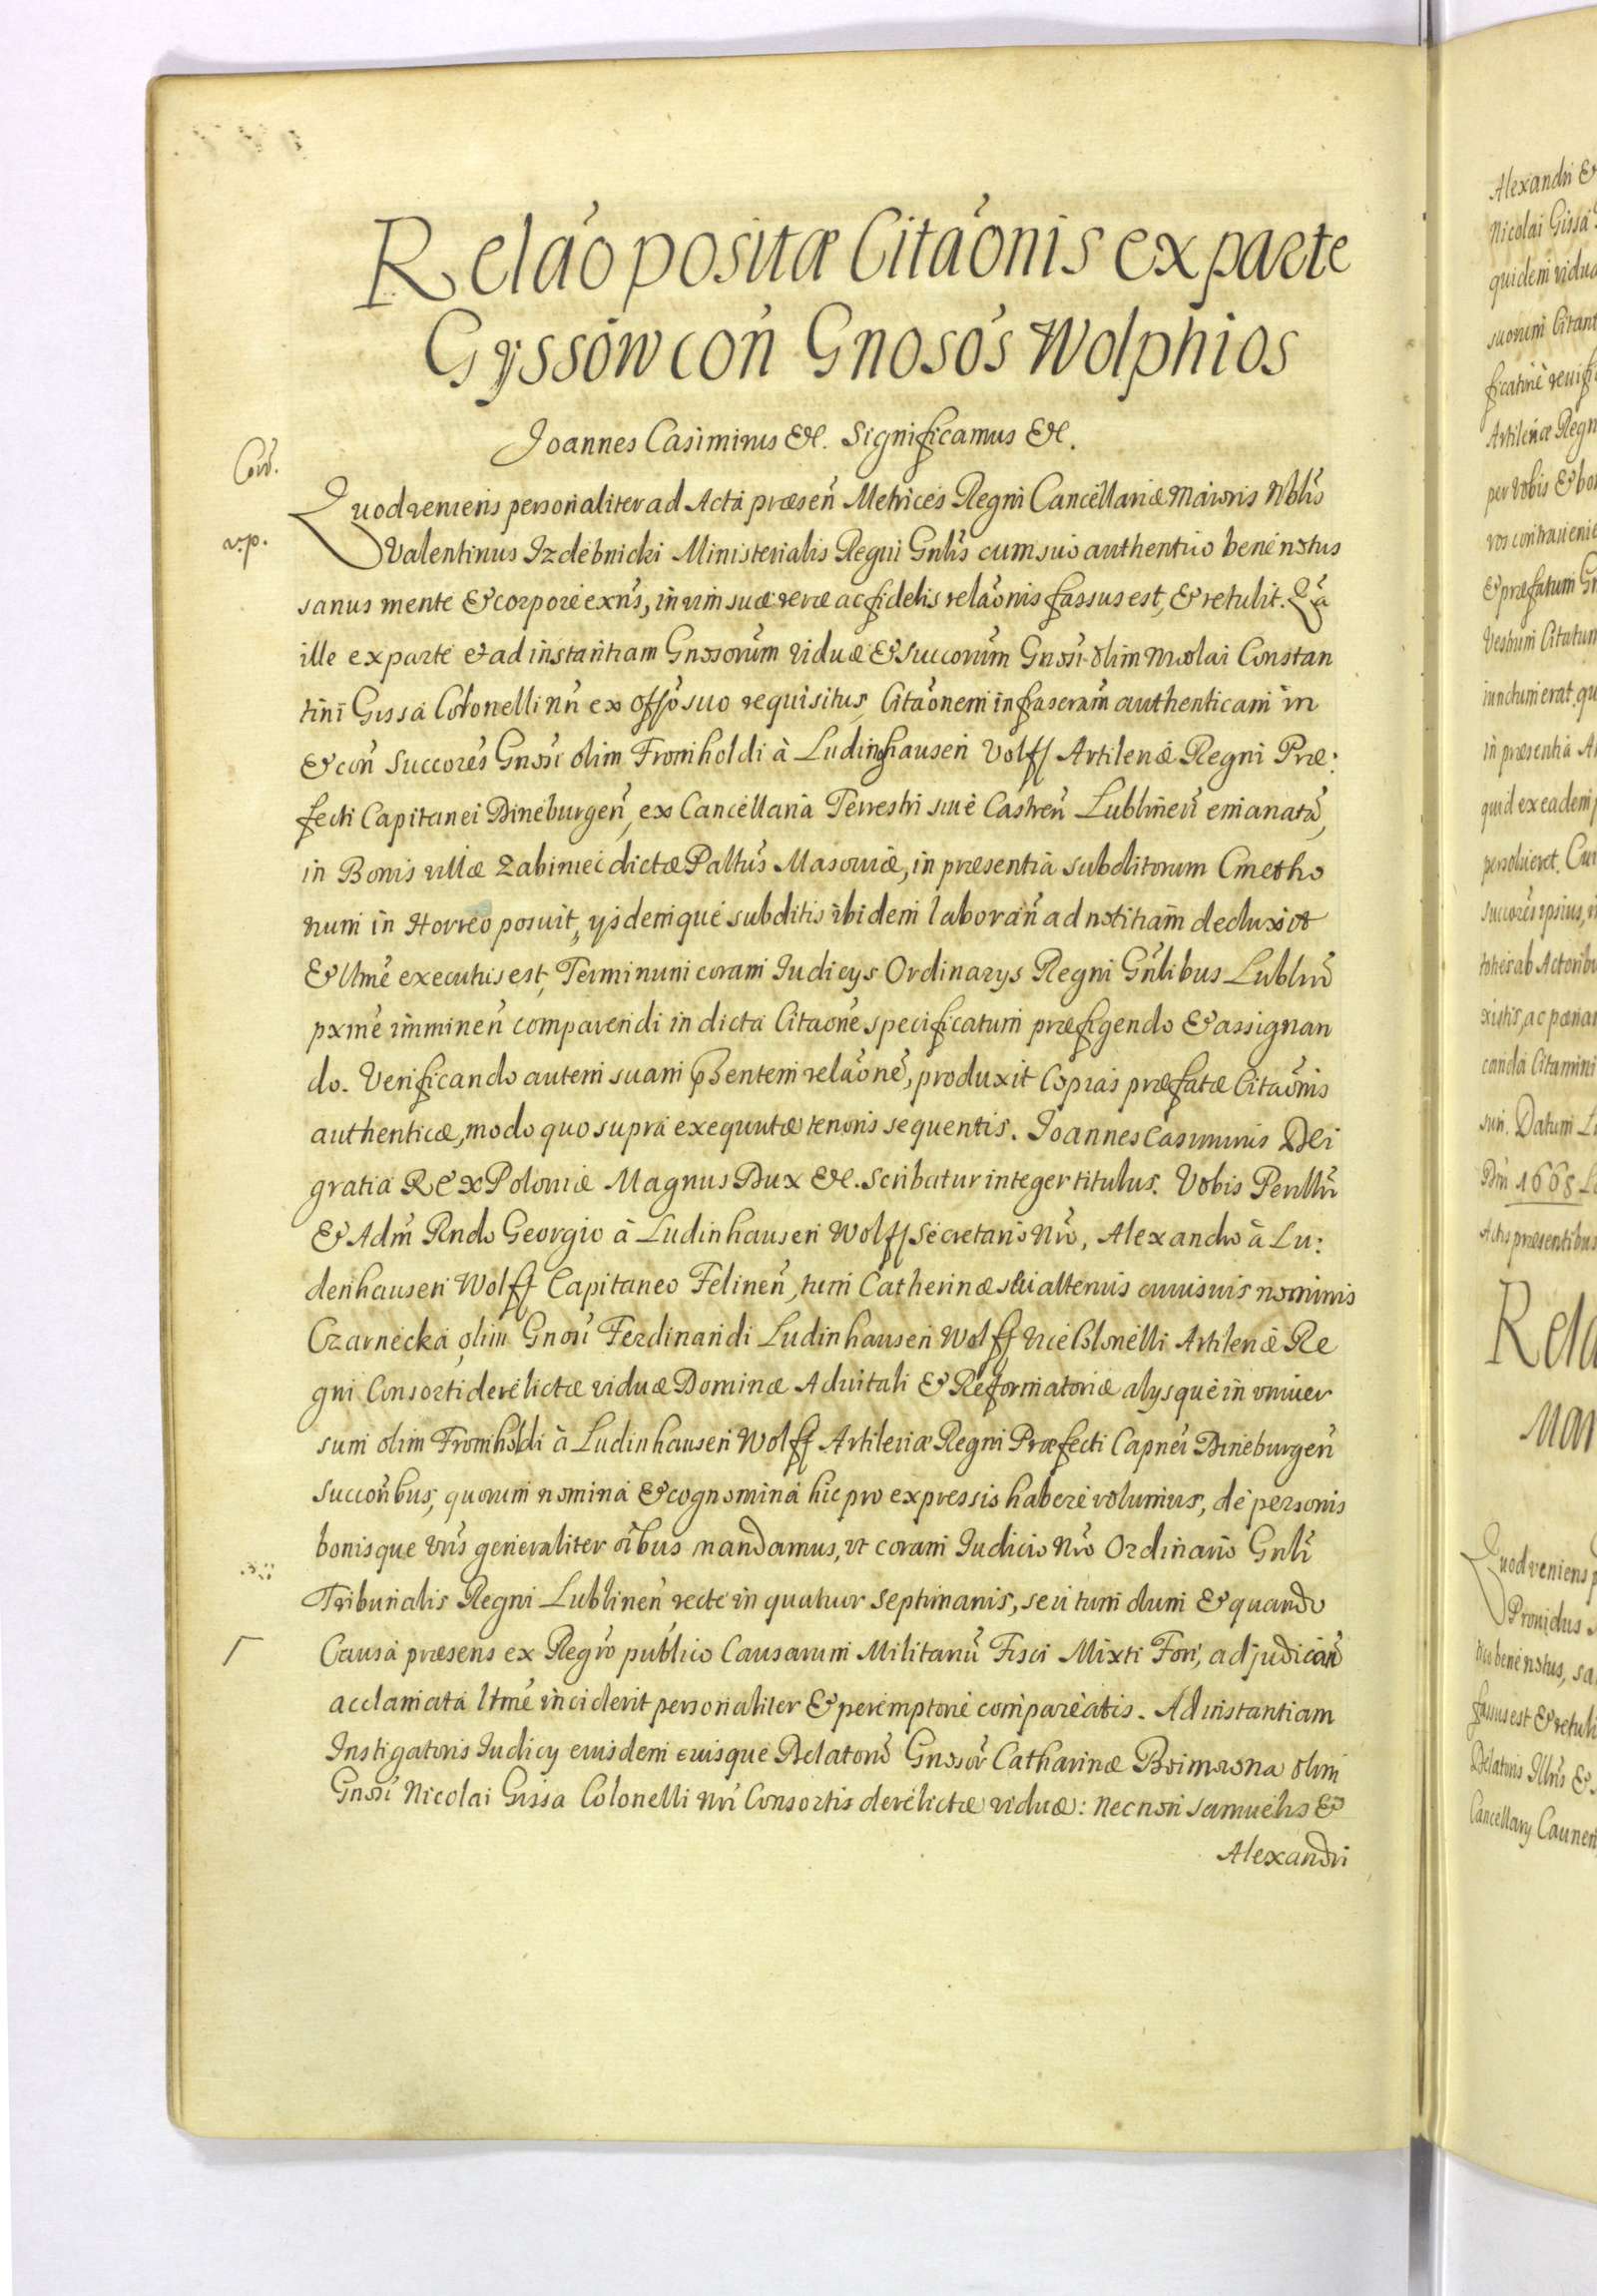 Relão positæ Citãonis ex parte
Gyssow con̄ Gnosõs Wolphios
Joannes Casimirus &c. Significamus &c.
Con̄.
Quod veniens personaliter ad Acta præsen̄ Metrices Regni Cancellariæ Maioris Nblis̄
v.p.
Valentinus Izdebnicki Ministerialis Regni Gnlis̄ cum suo authentico bene notus
sanus mente & corpore exn̄s, in vim suæ veræ ac fidelis relãonis fassus est, & retulit. Quã
ille ex parte et ad instantiam Gnosorum viduæ & Succorum̄ Gnosi olim Nicolai Constan
tini Gissa Colonelli nri̅ ex offo̅ suo requisitus, Citãonem infrascram̄ authenticam in
& con̄ Succores̄ Gnosi olim Fromholdi à Ludinghausen Volff Artileriæ Regni Præ:
fecti Capitanei Dineburgen̄, ex Cancellaria Terrestri sive Castren̄ Lublinen̄ emanatā,
in Bonis villæ Zabiniec dictæ Paltus̄ Masoviæ, in præsentia subditorum Cmetho
num in Horreo posuit, ijsdemque subditis ibidem laboran̄ ad notitiam deduxit
& Ltme̅ executus est, Terminum coram Iudicijs Ordinarijs Regni Gnlibus̄ Lublin̄
pxme̅ imminen̄ comparendi in dicta Citãone specificatum præfigendo & assignan
do. Verificando autem suam p̄sentem relãonē, produxit Copias præfatæ Citãonis
authenticæ, modo quo supra exequutæ tenoris sequentis. Joannes Casimirus Dei
gratia Rex Poloniæ Magnus Dux &c. Scribatur integer titulus. Vobis Perillri̅
& Adm̄ Rndo Georgio à Ludinhausen Wolff Secretario Nr̄o, Alexandro à Lu:
denhausen Wolff Capitaneo Felinen̄, tum Catherinæ seu alterius cuiusuis nominis
Czarnecka olim Gnosi Ferdinandi Ludinhausen Wolff Vice Colonelli Artileriæ Re
gni Consorti derelictæ viduæ Dominæ Aduitali & Reformatoriæ alysque in vniuer
sum olim Fromholdi à Ludinhausen Wolff Artileriæ Regni Præfecti Capnei̅ Dineburgen̄
Succoribus̄, quorum nomina & cognomina hic pro expressis habere volumus, de personis
bonisque vr̄is generaliter oibus̄ mandamus, vt coram Iudicio Nr̄o Ordinario Gnli̅
Tribunalis Regni Lublinen̄ recte in quatuor septimanis, seu tum dum & quando
Causa præsens ex Regrō publico Causarum Militariū Fisci Mixti Fori, adjudicān̄
acclamata ltme̅ inciderit personaliter & peremptorie compareatis. Ad instantiam
Instigatoris Iudicij eiusdem eiusque Delatorū Gnosor̄ Catharinæ Boimowna olim
Gnosi Nicolai Gissa Colonelli Nr̄i Consortis derelictæ viduæ: necnon Samuelis &
Alexandri
Alexandri &
Nicolai Gissa
quidem vidua
suorum Citant
ficatine
Artileriæ Regn
per Vobis & bo
vos contrauenie
& præfatum Gn
Vestrum Citatum
iunctum erat, qu
in præsentia A
quid ex eadem
persolueret. Cu
Succores̄ ipsius,
toties ab Actoribu
ac pœna
canda Citamini
Datum L
Dni̅ 1668
Actis præsentibus
Rela
Man
Quod veniens
Prouidus
bene notus, sa
fassus est & retuli
Delatoris Illris̄ &
Cancellary Caunen